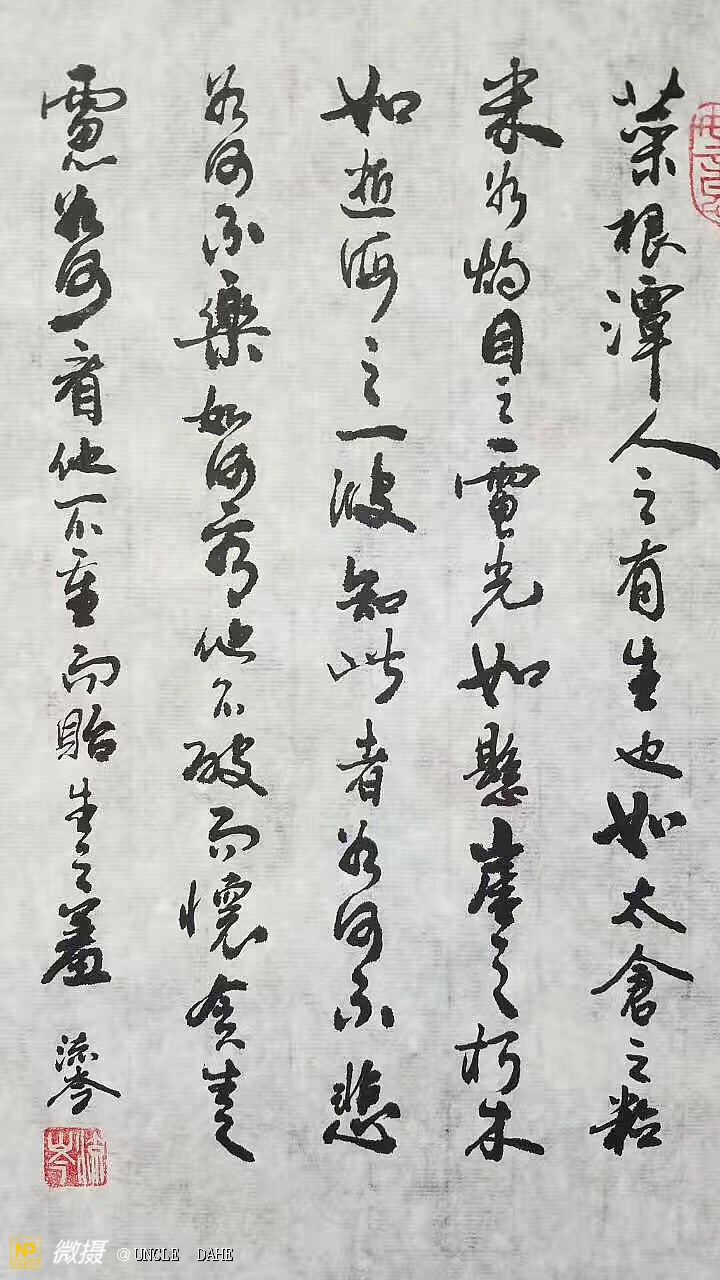 菜根潭人之有生也如太倉之粒
米如灼目之一電光如懸崖之朽木
如逝海之一波知此者如何不悲
如何不樂如何看他不破而懷貪生之
慮如何看他不重而貽生之羞
流岑
微摄 @UNCLE DAHE